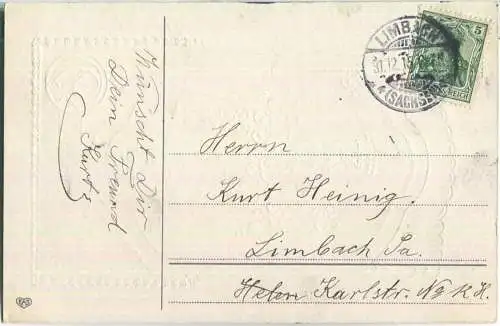 Wünscht Dir
Dein Freund
Kurt
LIMBACH
31.12.
(SACHSEN)
5
REICH
Herrn
Kurt Heinig.
Limbach Sa.
Helen Karlstr. No
EAS